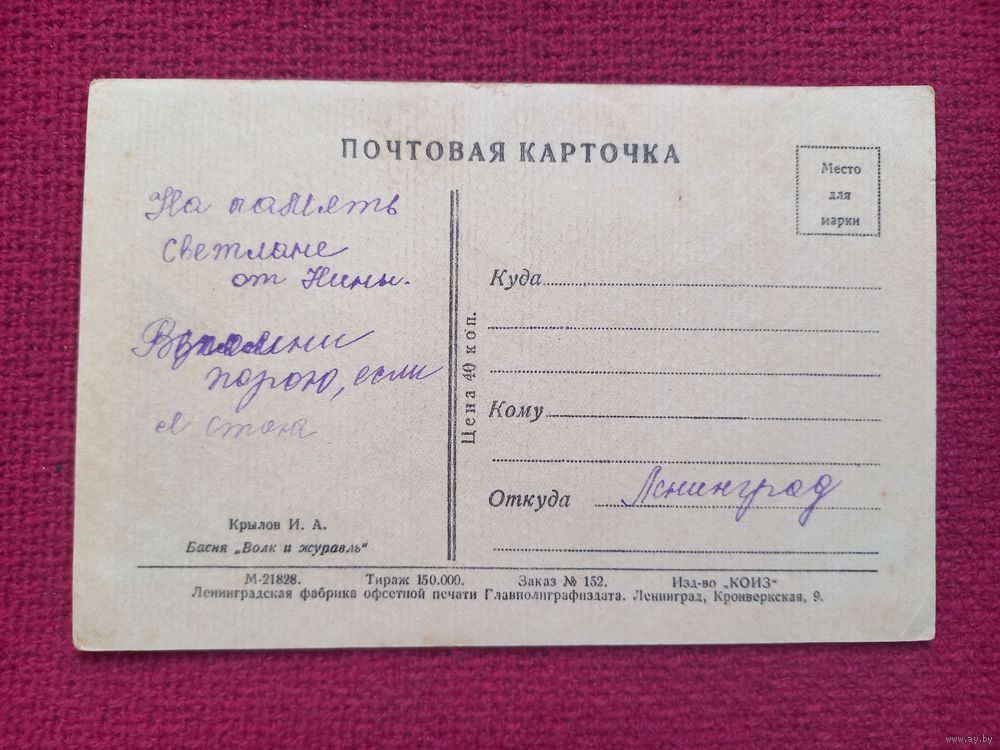 ПОЧТОВАЯ КАРТОЧКА
Место
для
марки
На память
Светлане
от Нины.
Вспомни
порою, если
я стою
Куда
Цена 40 коп.
Кому
Откуда Ленинград
Крылов И. А.
Басня „Волк и журавль"
М-21828. Тираж 150.000. Заказ № 152. Изд-во „КОИЗ"
Ленинградская фабрика офсетной печати Главполиграфиздата. Ленинград, Кронверкская, 9.
www.ay.by